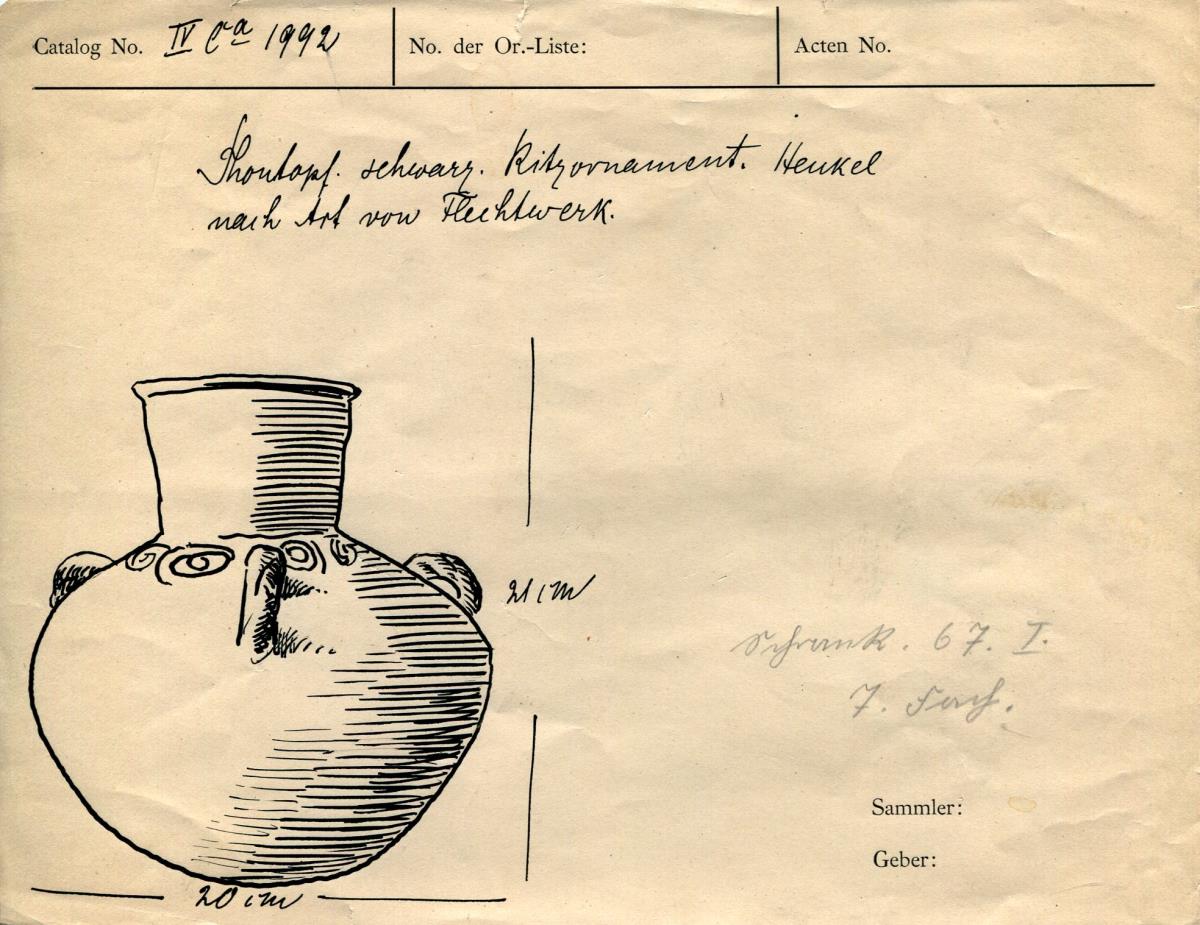 Catalog No. IV Ca 1992 No. der Or.-Liste: Acten No.
Thontopf. schwarz. Ritzornament. Henkel
nach Art von Flechtwerk.
21 cm
Schrank. 67. I.
7. Fach.
Sammler:
Geber:
20 cm